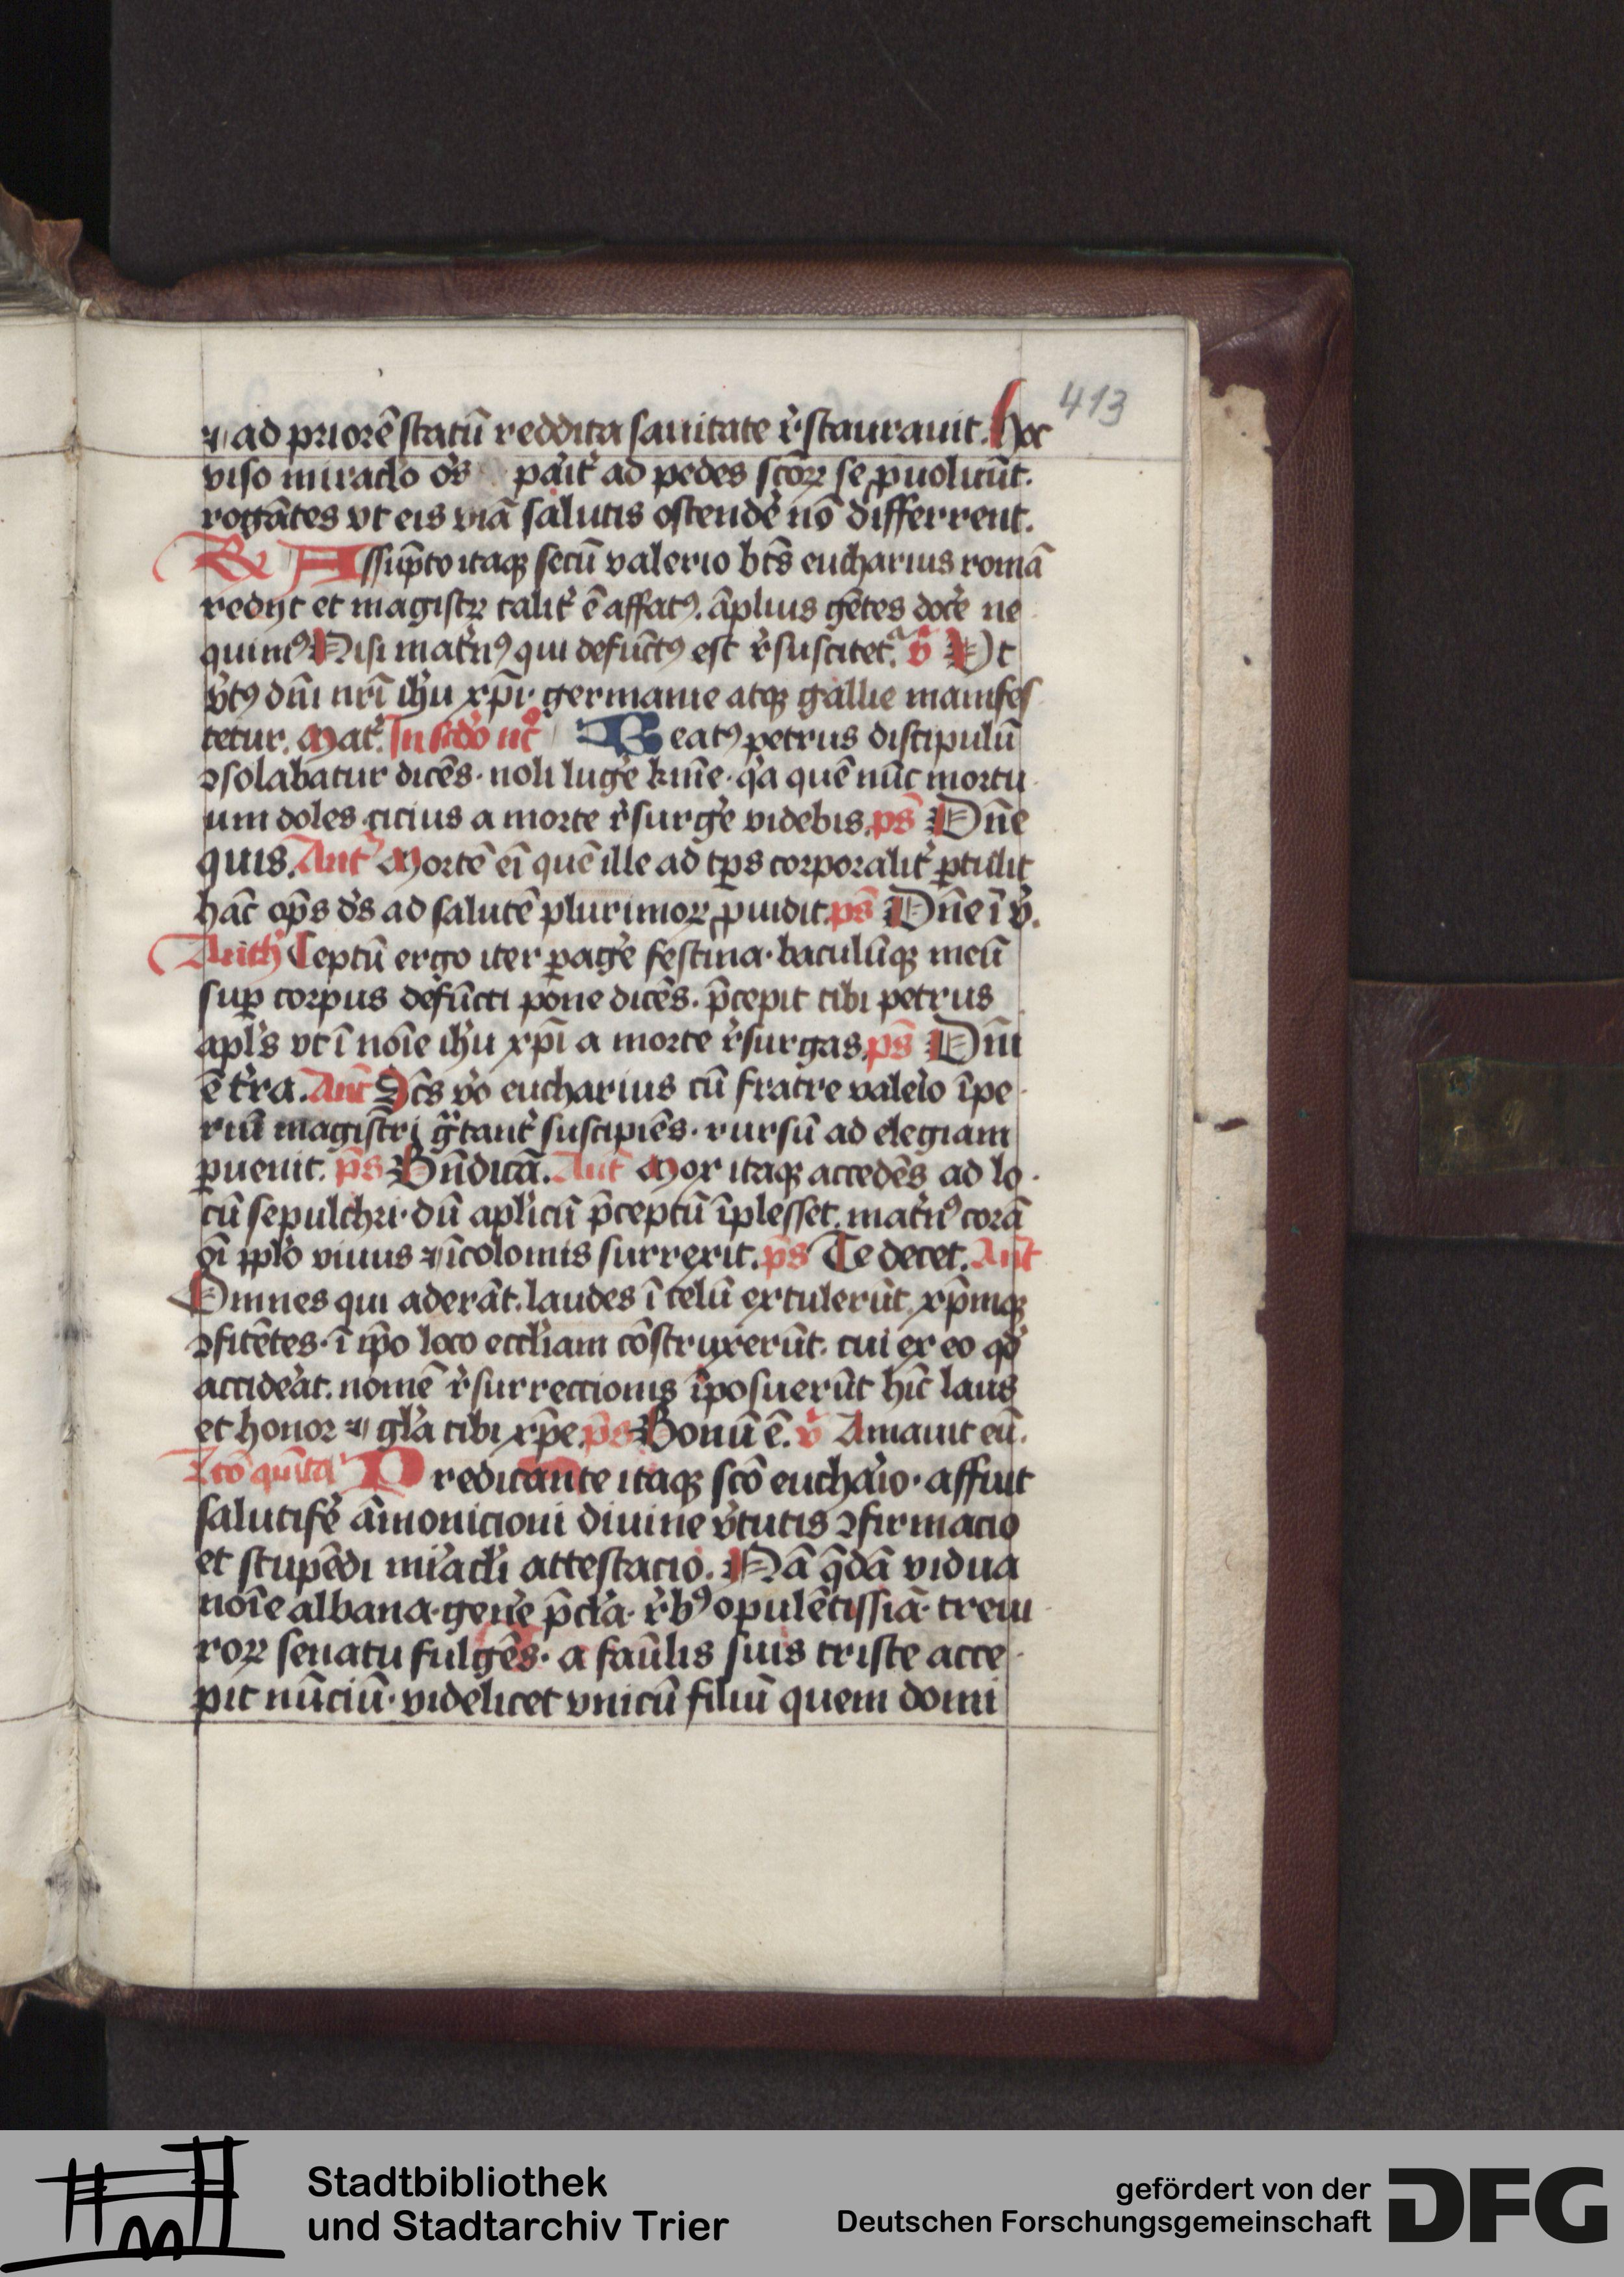 413
⁊ ad priorē statū reddita sanitate r̓staurauit. Hoc
viso miraclo o̓s pa̓it̓ ad pedes sc̄oꝝ se ꝓuolūt.
rogātes vt eis viā salutis ostende̓ nō differrent.
℞ Assūpto itaqꝫ secū valerio bt̄s eucharius romā
redijt et magistꝝ talit̓ ē affatꝰ. āplius gētes doce̓ ne
quimꝰ Nisi mat̓nꝰ qui defūctꝰ est r̓suscitet̓. v̓ Vt
v̓tꝰ dn̄i nr̄i ih̓u xp̄i· germanie atqꝫ gallie manifes
tetur. Mat̓. In sc̄do nc̓ Beatꝰ petrus discipulū
ꝯsolabatur dicēs· noli luge̓ k̄me· q̓a quē nūc mortu
um doles cicius a morte r̓surge̓ videbis. ps̄ Dn̄e
quis. Ant̓ Mortē ei̅ quē ille ad tp̄s corporalit̓ ꝑtulit
hāc op̄s d̓s ad salutē plurimoꝝ ꝓuidit. ps̄ Dn̄e ī v̓.
Anth̓ Ceptū ergo iter ꝑage̓ festina· baculūqꝫ meū
suꝑ corpus defūcti pone dicēs. p̄cepit tibi petrus
apl̓s vt ī nōie ih̓u xp̄i a morte r̓surgas. ps̄ Dn̄i
ē t̓ra. Ant̄ Sc̄s v̓o eucharius cū fratre vale̓io īpe
riū magistri g̓tant̓ suscipiēs· rursū ad elegiam
ꝑuenit. ps̄ Bn̄dicā. Ant̄ Mox itaqꝫ accedēs ad lo
cū sepulchri· dū apl̓icū p̄ceptū īplesset. mat̓nꝰ corā
oī pplo viuus ⁊ īcolomis surrexit. ps̄ Te decet. Ant̄
Omnes qui aderāt. laudes ī celū extulerūt. xp̄mqꝫ
ꝯfitētes· ī ip̄o loco eccl̓iam cōstruxerūt· cui ex eo qd̓
accide̓at. nomē r̓surreccionis īposuerūt hīc laus
et honor ⁊ gl̓a tibi xp̄e. ps̄ Bonū ē. v̓ Amauit eū.
Lc̄o quīta Predicante itaqꝫ sc̄o eucha̓io· affuit
salutife̓ āmonicioni diuine v̓tutis ꝯfirmacio
et stupēdi mi̓acl̓i attestacio. Nā q̄dā vidua
nōie albana· gene̓ p̄cl̓a· r̓bꝰ opulētissīa· treui
roꝝ senatu fulgēs· a famulis suis triste acce
pit nūciū· videlicet vnicū filiū quem domi
Stadtbibliothek
und Stadtarchiv Trier
gefördert von der
Deutschen Forschungsgemeinschaft
DFG